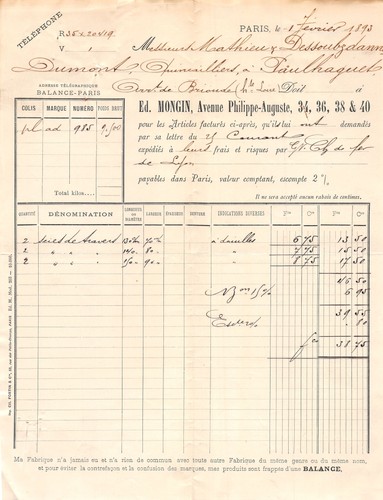 TÉLÉPHONE
R 35 x 20419
V 1
PARIS, le 1 Février 1893
Messieurs Mathieu & Dessoubzdanne
Dumont, Quincailliers, à Paulhaguet
ADRESSE TÉLÉGRAPHIQUE
BALANCE-PARIS
Brioude (Hte Loire) Doit à
Ed. MONGIN, Avenue Philippe-Auguste, 34, 36, 38 & 40
COLIS MARQUE NUMÉRO POIDS BRUT
pl ad 985 9,500
Total kilos
pour les Articles facturés ci-après, qu'ils lui ont demandés
par sa lettre du 25 Courant
expédiés à leurs frais et risques par Gv. Ch. de fer
de Lyon
payables dans Paris, valeur comptant, escompte 2 %
Il ne sera accepté aucun rabais de centimes.
QUANTITÉ DÉNOMINATION LONGUEUR OU DIAMÈTRE LARGEUR ÉPAISSEUR DENTURE INDICATIONS DIVERSES Fcs Cs Fcs Cs
2 scies de travers 130c/m 70m/m à douilles 6 75 13 50
2 " " 140 80 " 7 75 15 50
2 " " 150 90 " 8 75 17 50
46 50
Ron 15 % 6 95
39 55
Esc 2 % 80
fcs 38 75
Imp. ED. PORTIN & Cie
Ma Fabrique n'a jamais eu et n'a rien de commun avec toute autre Fabrique du même genre ou du même nom,
et pour éviter la contrefaçon et la confusion des marques, mes produits sont frappés d'une BALANCE.